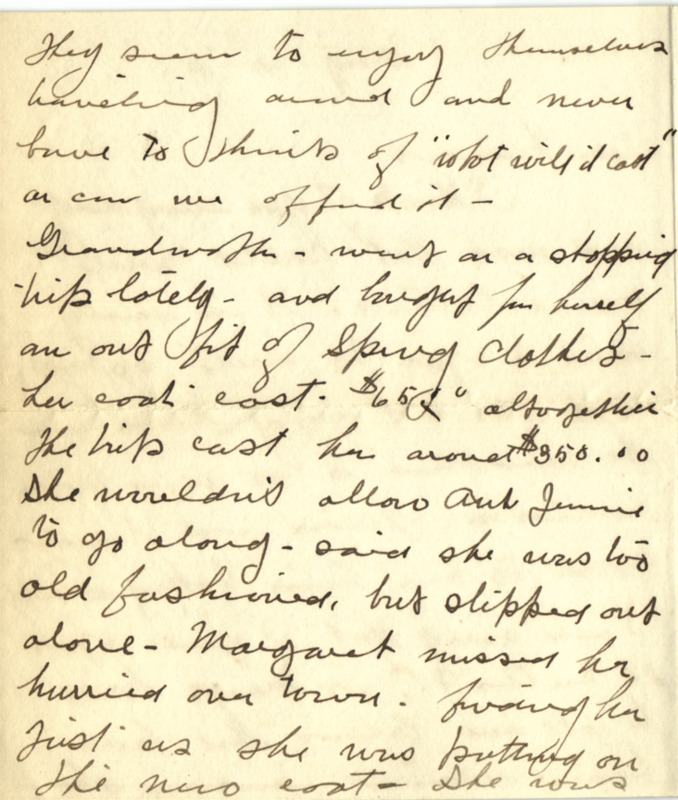 They seem to enjoy themselves
traveling around and never
have to think of "what will it cost"
or can we afford it -
Grandmother - went on a shopping
trip lately - and bought for herself
an out fit of Spring Clothes -
her coat cost - $65 altogether
the trip cost her around $350.00
She wouldn't allow Aunt Jennie
to go along - said she was too
old fashioned, but slipped out
alone - Margaret missed her
hurried over town - finding her
just as she was putting on
the new coat - She was